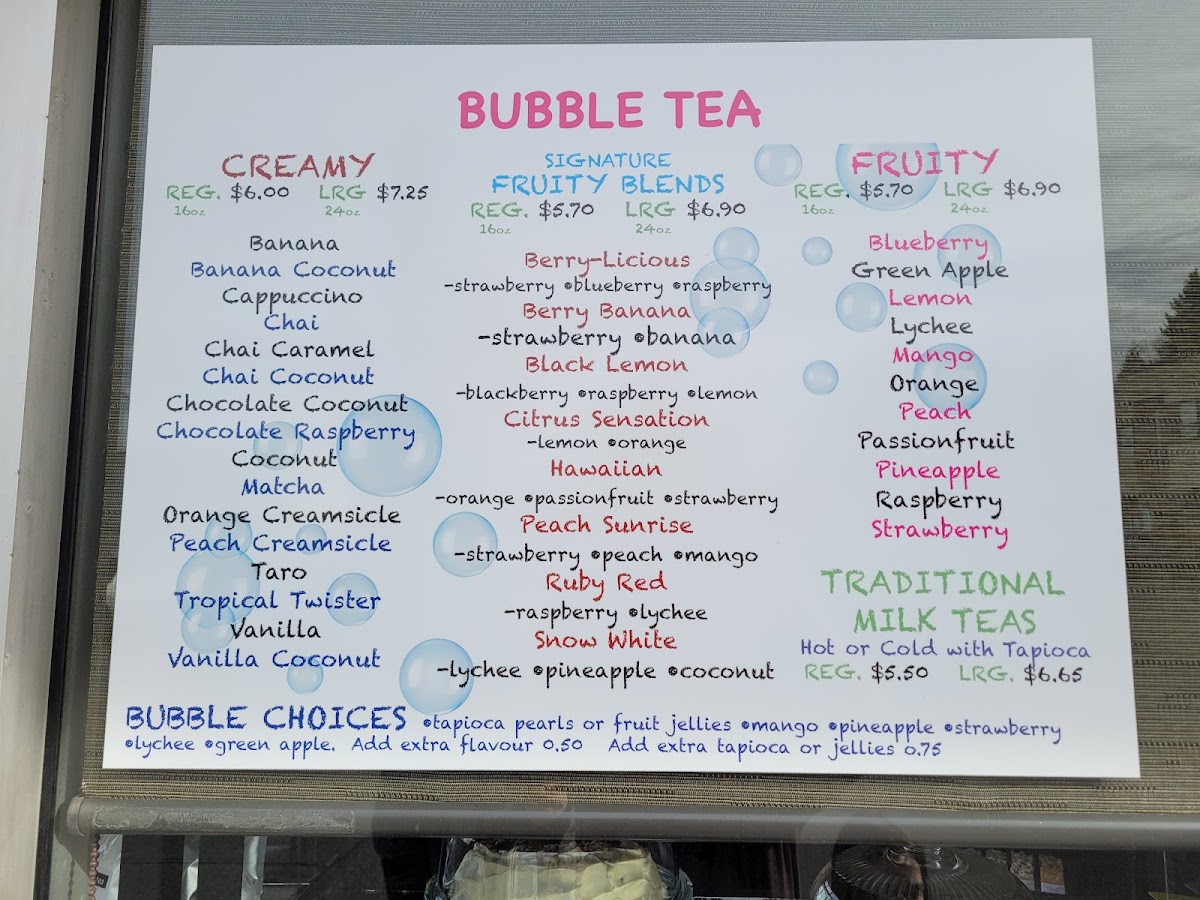 BUBBLE TEA
CREAMY
REG. $6.00 LRG $7.25
16oz 24oz
Banana
Banana Coconut
Cappuccino
Chai
Chai Caramel
Chai Coconut
Chocolate Coconut
Chocolate Raspberry
Coconut
Matcha
Orange Creamsicle
Peach Creamsicle
Taro
Tropical Twister
Vanilla
Vanilla Coconut
SIGNATURE
FRUITY BLENDS
REG. $5.70 LRG $6.90
16oz 24oz
Berry-Licious
-strawberry •blueberry •raspberry
Berry Banana
-strawberry •banana
Black Lemon
-blackberry •raspberry •lemon
Citrus Sensation
-lemon •orange
Hawaiian
-orange •passionfruit •strawberry
Peach Sunrise
-strawberry •peach •mango
Ruby Red
-raspberry •lychee
Snow White
-lychee •pineapple •coconut
FRUITY
REG. $5.70 LRG $6.90
16oz 24oz
Blueberry
Green Apple
Lemon
Lychee
Mango
Orange
Peach
Passionfruit
Pineapple
Raspberry
Strawberry
TRADITIONAL
MILK TEAS
Hot or Cold with Tapioca
REG. $5.50 LRG. $6.65
BUBBLE CHOICES •tapioca pearls or fruit jellies •mango •pineapple •strawberry
•lychee •green apple. Add extra flavour 0.50 Add extra tapioca or jellies 0.75